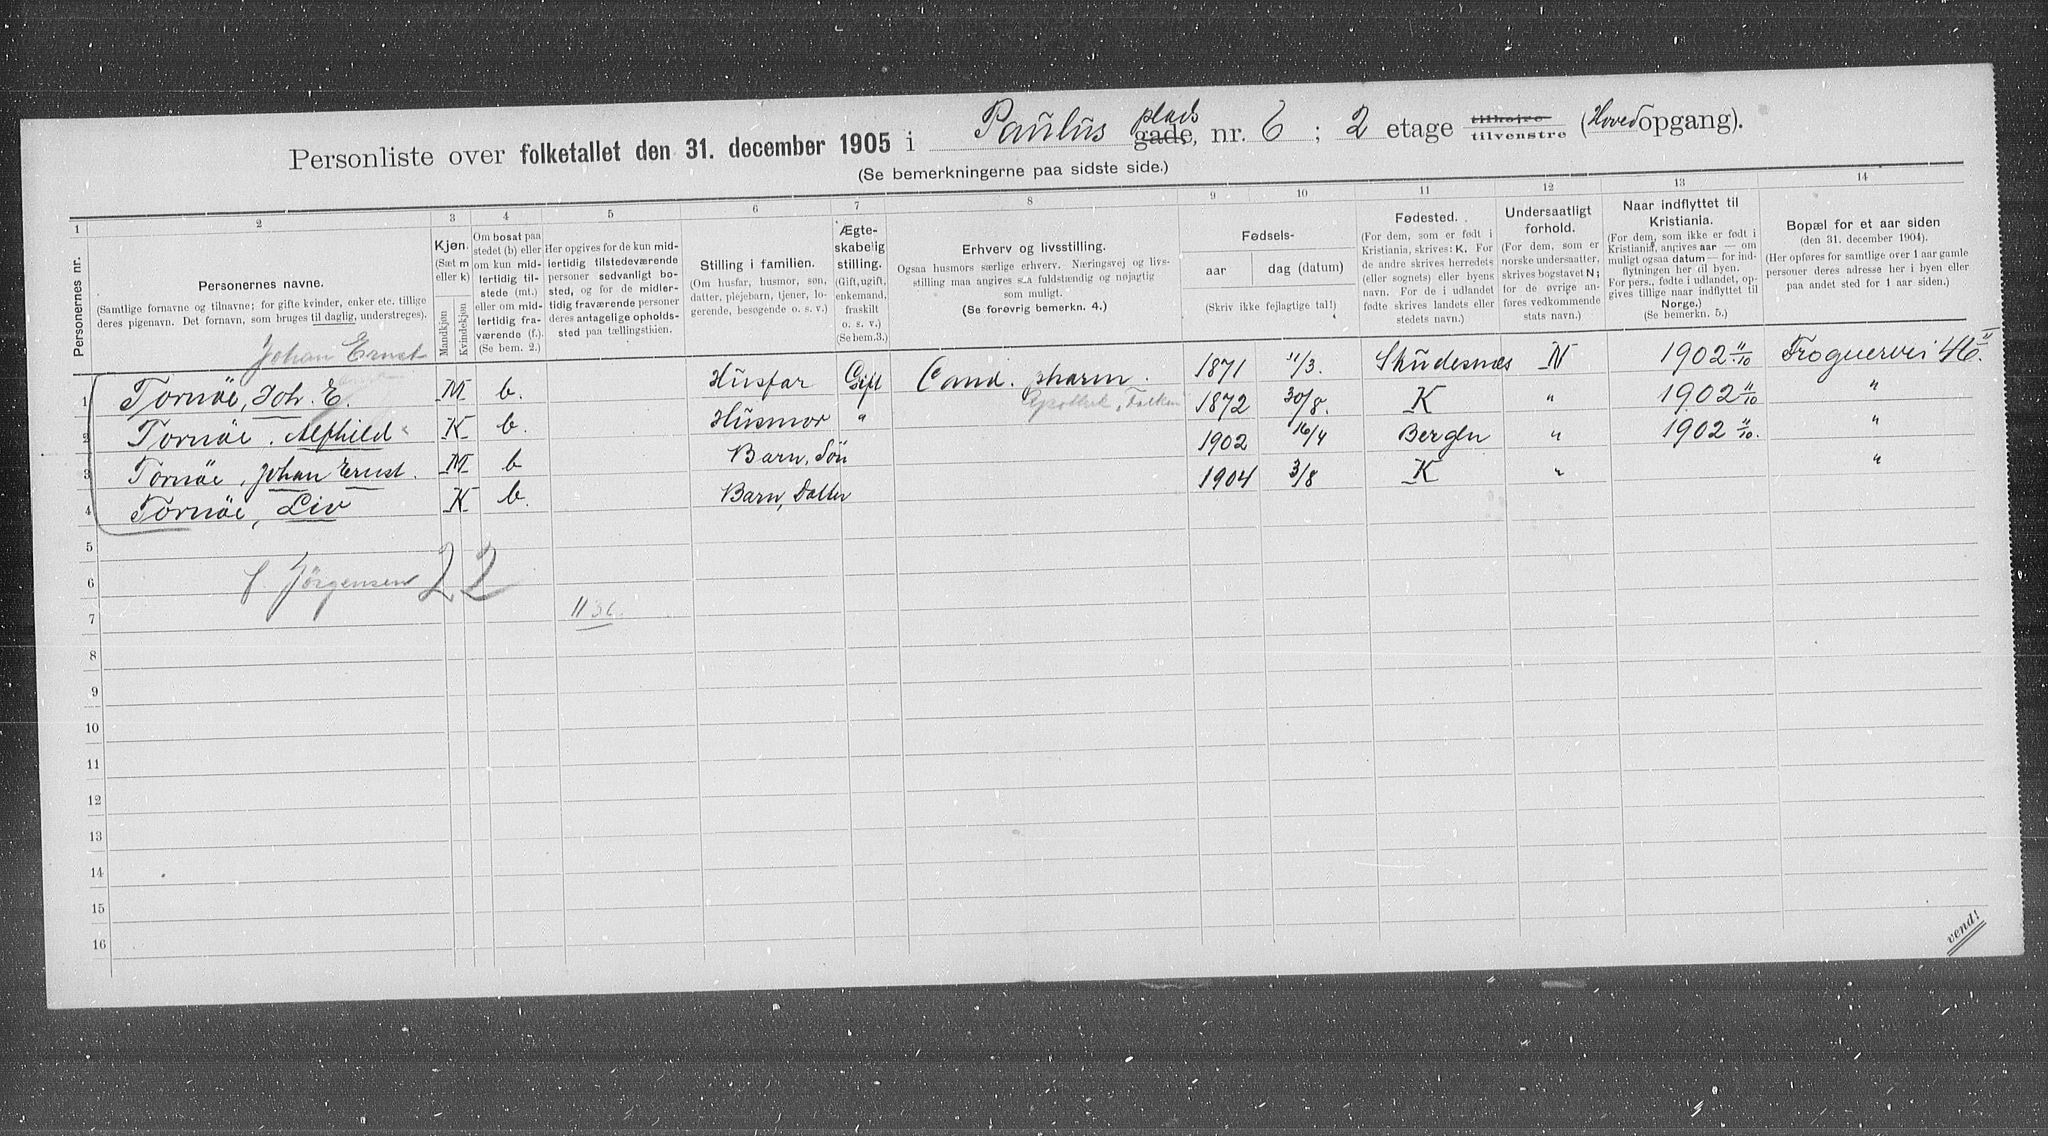 Personliste over folketallet den 31. december 1905 i Paulus plads gade, nr. 6 ; 2 etage tilhøire tilvenstre (Hovedopgang).
(Se bemerkningerne paa sidste side.)
1 2 3 4 5 6 7 8 9 10 11 12 13 14
Personernes nr.
Personernes navne.
(Samtlige fornavne og tilnavne; for gifte kvinder, enker etc. tillige
deres pigenavn. Det fornavn, som bruges til daglig, understreges).
Kjøn.
(Sæt m
eller k)
Mandkjøn
Kvindekjøn
Om bosat paa
stedet (b) eller
om kun mid-
lertidig til-
stede (mt.)
eller om mid-
lertidig fra-
værende (f.).
(Se bem. 2.)
Her opgives for de kun mid-
lertidig tilstedeværende
personer sedvanligt bo-
sted, og for de midler-
tidig fraværende personer
deres antagelige opholds-
sted paa tællingstiden.
Stilling i familien.
(Om husfar, husmor, søn,
datter, plejebarn, tjener, lo-
gerende, besøgende o. s. v.)
Ægte-
skabelig
stilling.
(Gift, ugift,
enkemand,
fraskilt
o. s. v.)
(Se bem. 3.)
Erhverv og livsstilling.
Ogsaa husmors særlige erhverv. Næringsvej og livs-
stilling maa angives saa fuldstændig og nøjagtig
som muligt.
(Se forøvrig bemerkn. 4.)
Fødsels-
aar dag (datum)
(Skriv ikke fejlagtige tal!)
Fødested.
(For dem, som er født i
Kristiania, skrives: K. For
de andre skrives herredets
(eller sognets) eller byens
navn. For de i udlandet
fødte skrives landets eller
stedets navn.)
Undersaatligt
forhold.
(For dem, som er
norske undersaatter,
skrives bogstavet N;
for de øvrige an-
føres vedkommende
stats navn.)
Naar indflyttet til
Kristiania.
(For dem, som ikke er født i
Kristiania, angives aar — om
muligt ogsaa datum — for ind-
flytningen her til byen.
For pers., fødte i udlandet, op-
gives tillige naar indflyttet til
Norge.)
(Se bemerkn. 5.)
Bopæl for et aar siden
(den 31. december 1904).
(Her opføres for samtlige over 1 aar gamle
personer deres adresse her i byen eller
paa andet sted for 1 aar siden.)
Johan Ernst
1 Tornöe, Joh. E. M b. Husfar Gift Cand. pharm. 1871 11/3. Skudesnæs N 1902 11/10 Frognervei 46 II
2 Tornöe, Alfhild K b. Husmor " 1872 30/8. K " 1902 11/10 "
3 Tornöe, Johan Ernst. M b Barn, Sön 1902 16/4 Bergen " 1902 11/10. "
4 Tornöe, Liv K b. Barn, Datter 1904 3/8 K " "
5
6 f Jörgensen 2 2
7 1136.
8
9
10
11
12
13
14
15
16
vend!